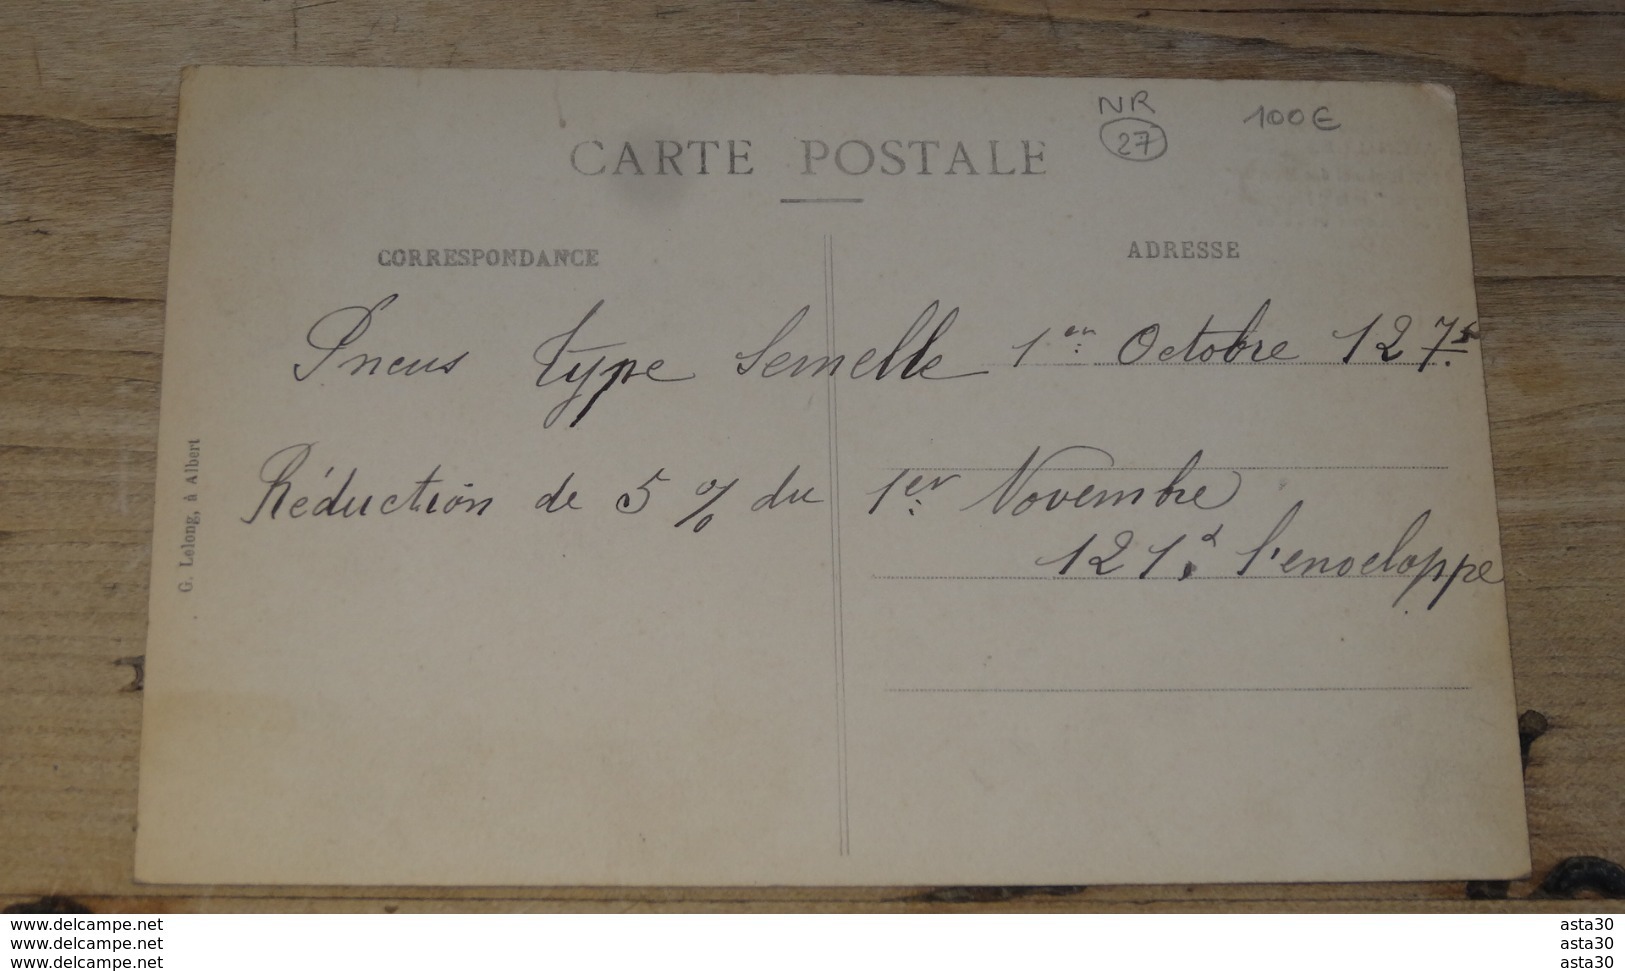 NR
27
100€
CARTE POSTALE
CORRESPONDANCE
ADRESSE
Pneus type Semelle 1er Octobre 127f
Réduction de 5 % du 1er Novembre
121f l'enveloppe
G. Lelong, à Albert
www.delcampe.net
www.delcampe.net
www.delcampe.net
asta30
asta30
asta30